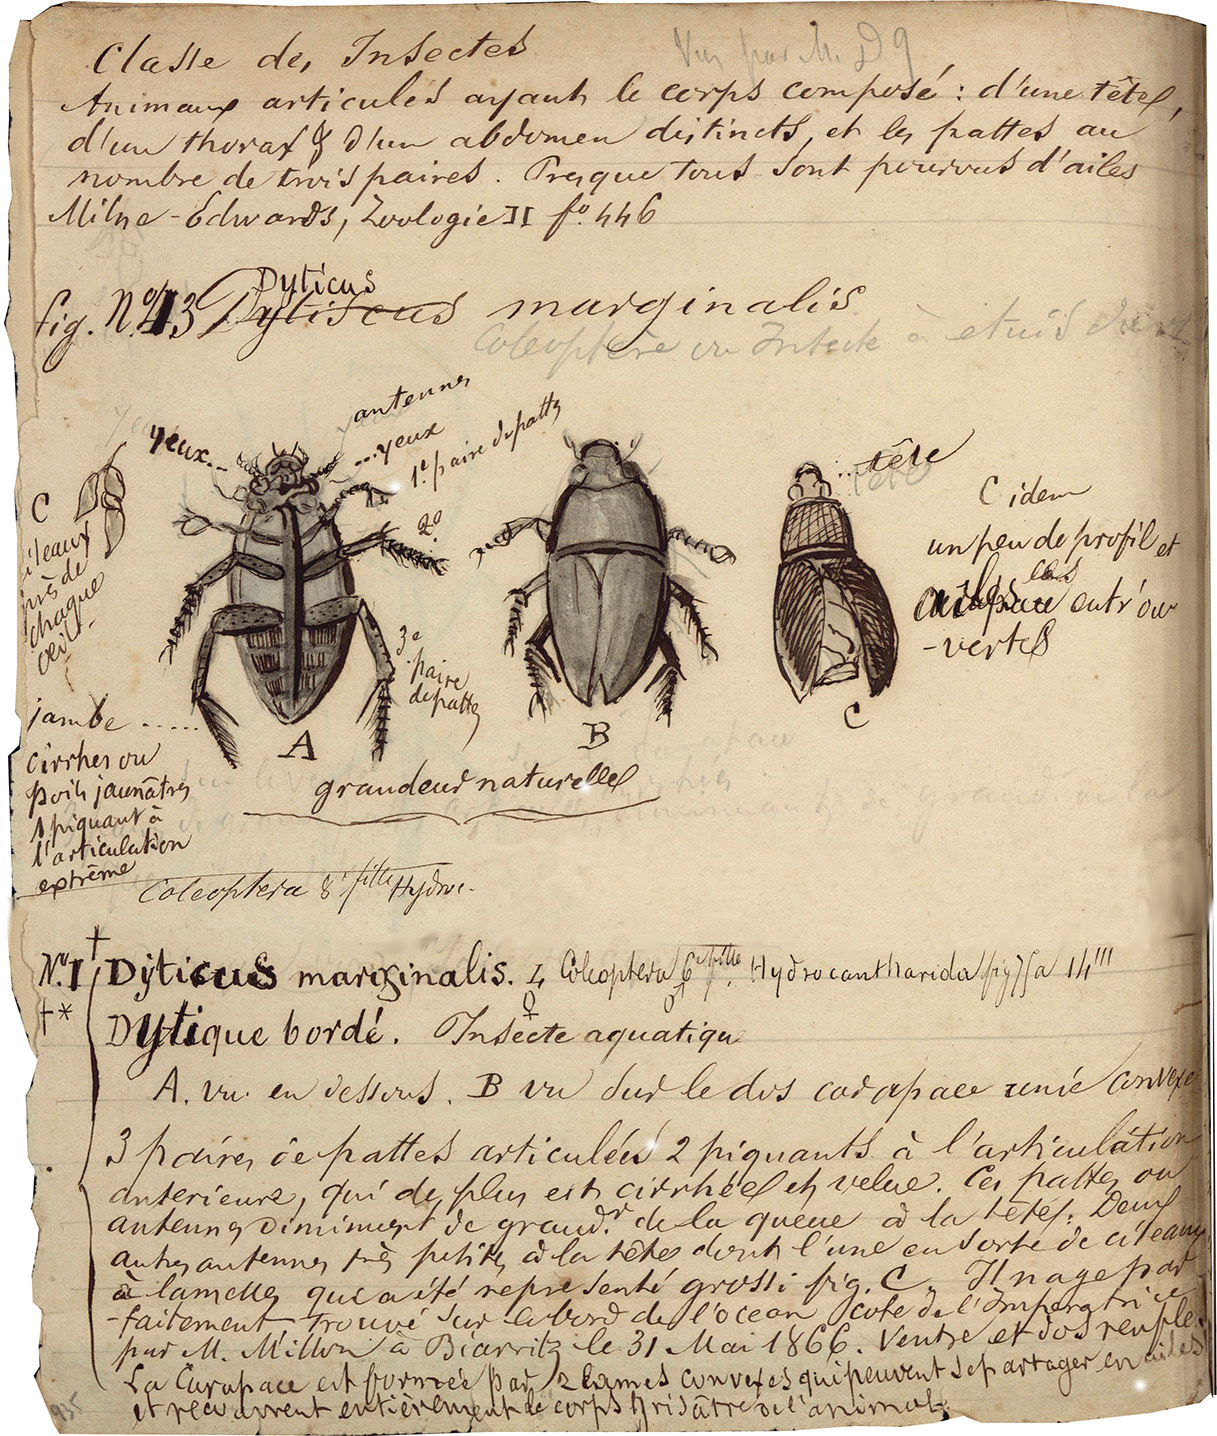 Classe des Insectes
Vu par M. D 9
Animaux articulés ayant le corps composé : d'une tête,
d'un thorax & d'un abdomen distincts, et les pattes au
nombre de trois paires. Presque tous sont pourvus d'ailes
Milne-Edwards, Zoologie II fo. 446
Dyticus
fig. No. 13 Dytiscus marginalis
Coleoptère ou Insecte à etuis
antennes
yeux...
...yeux
1e. paire de pattes
2e.
...tête
C
C idem
un peu de profil et
les
entr'ou
-vertes
près de
chaque
oeil.
3e
paire
de pattes
jambe .....
A
B
C
cirrhes ou
poils jaunâtres
1 piquant à
l'articulation
extrême
grandeur naturelle
Coleoptera 8e fille Hydroc.
No. 1 Dyticus marginalis. L Coleoptera 6e fille. Hydrocantharida fig 14'''
†*
♀ ♂
Dytique bordé. Insecte aquatique
A. vu en dessous. B vu sur le dos carapace unie convexe
3 paires de pattes articulées 2 piquants à l'articulation
anterieure, qui de plus est cirrhée et velue. Ces pattes ou
antennes diminuent de grandr. de la queue à la tête. Deux
autres antennes très petites à la tête dont l'une en sorte de
à lamelles qui a été representé grossi fig. C. Il nage par
-faitement trouvé sur le bord de l'ocean cote de l'Imperatrice
par M. Millon à Biarritz le 31 Mai 1866. Ventre et dos
La Carapace est formée par 2 lames convexes qui peuvent se partager en ailes
et recouvrent entièrement le corps grisâtre de l'animal.